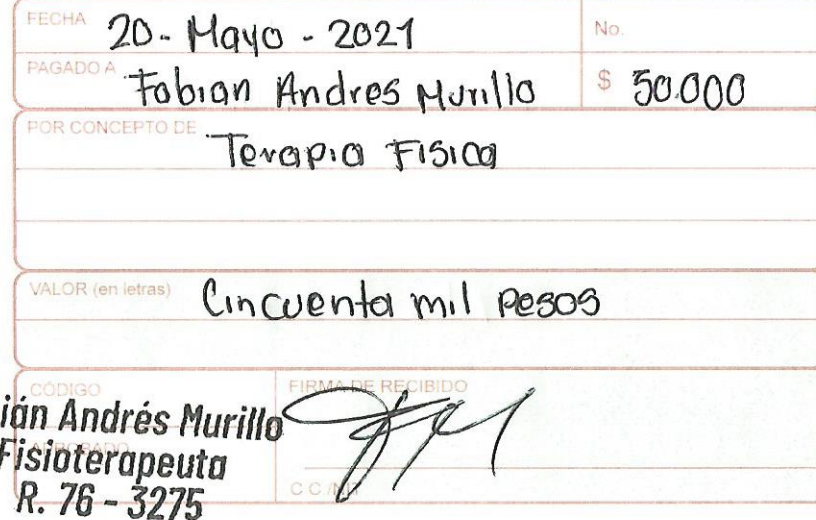 FECHA 20 - Mayo - 2021 No.
PAGADO A Fabian Andres Murillo $ 50.000
POR CONCEPTO DE Terapia Fisica
VALOR (en letras) Cincuenta mil pesos
CÓDIGO FIRMA DE RECIBIDO
ián Andrés Murillo
APROBADO
Fisioterapeuta
R. 76 - 3275 C.C./NIT